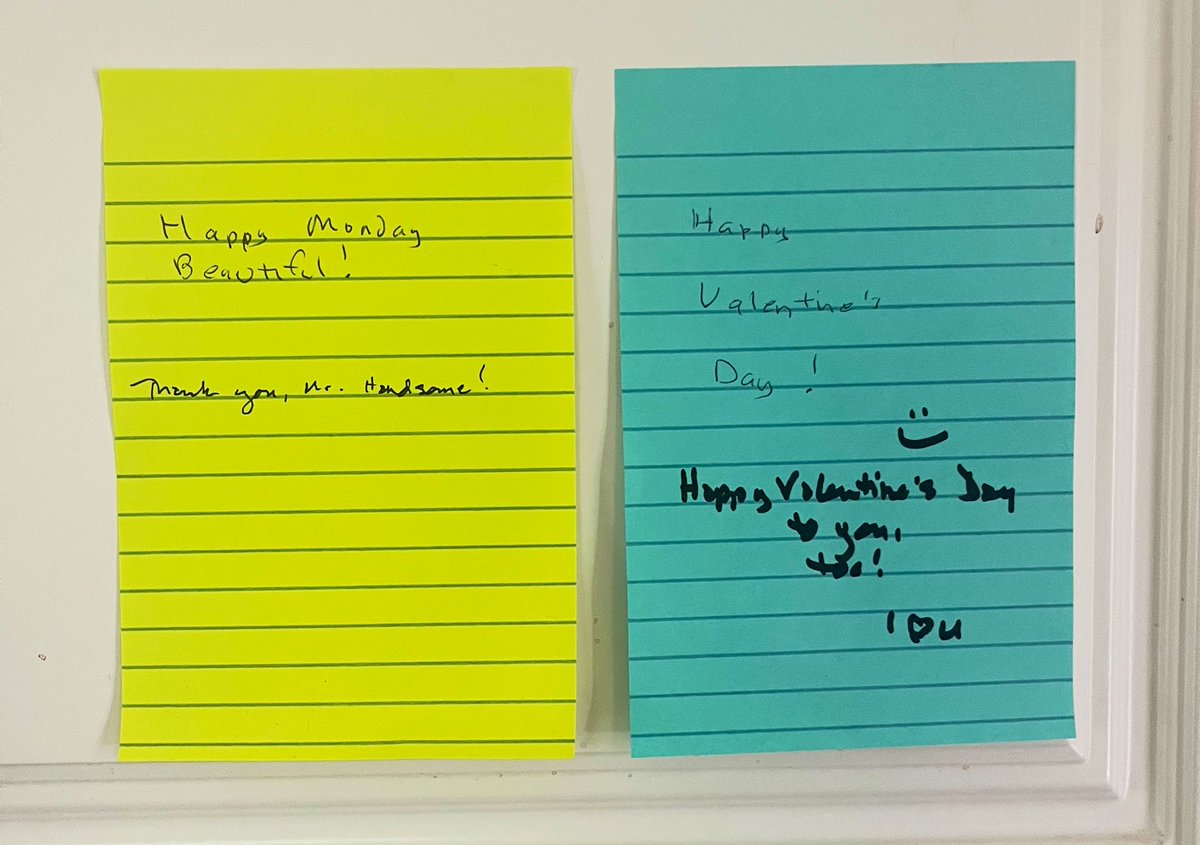 Happy Monday
Beautiful!
Thank you, Mr. Handsome!
Happy
Valentine's
Day!
Happy Valentine's Day
to you,
too!
I ♡ u